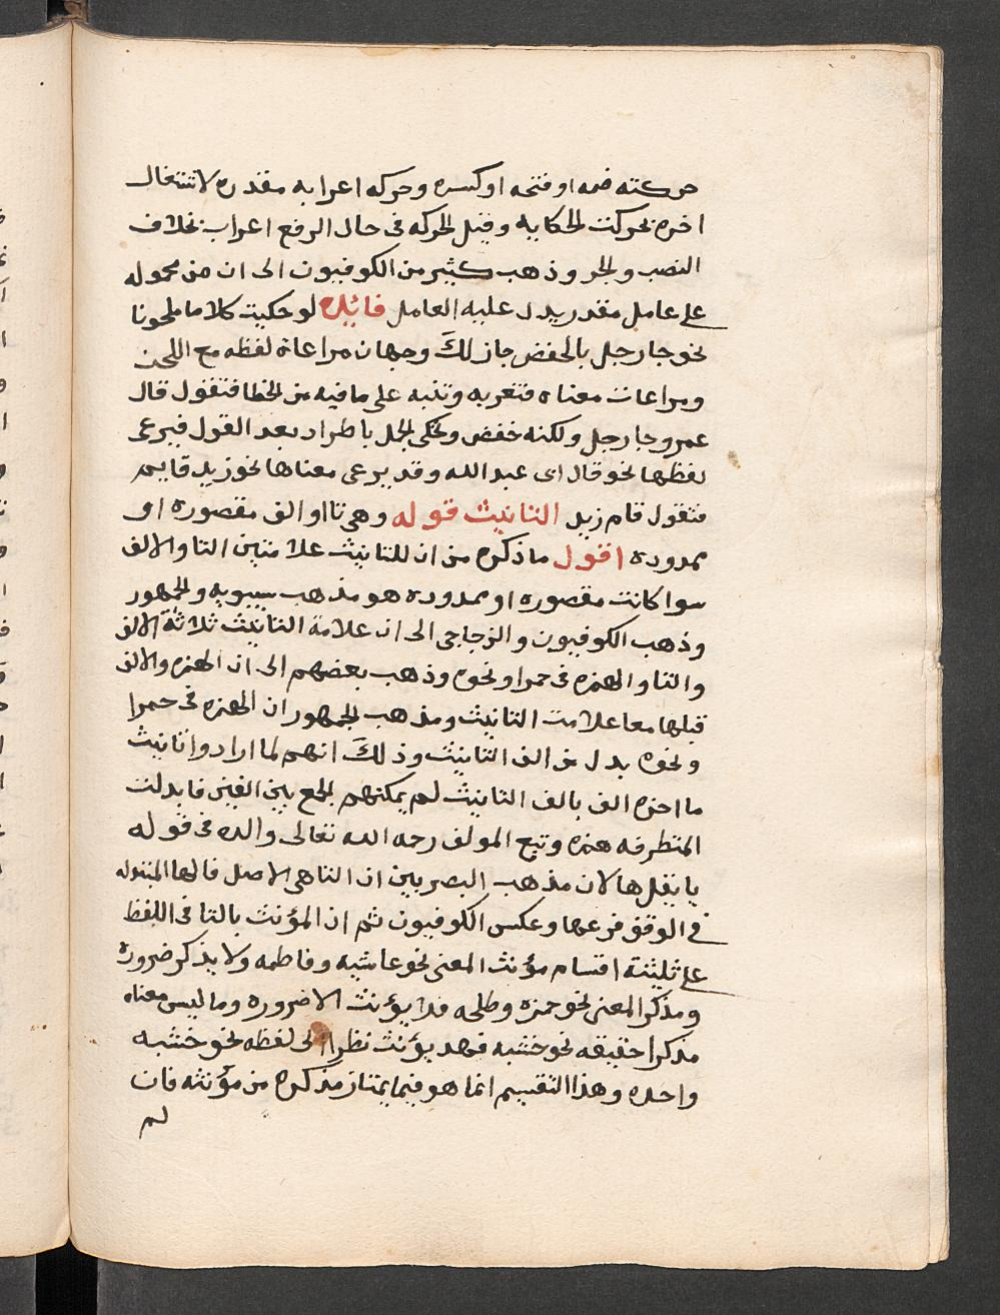 حركته ضمه او فتحه او كسره وحركه اعرابه مقدره لاشتغال
اخره بحركت الحكايه وقيل الحركه فى حال الرفع اعراب بخلاف
النصب والجر وذهب كثير من الكوفيون الى ان من محموله
على عامل مقدر يدل عليه العامل فائده لو حكيت كلاما ملحونا
نحو جا رجل بالخفض جاز لك وجهان مراعاة لفظه مع اللحن
ومراعات معناه فتعربه وتنبه على ما فيه من الخطا فتقول قال
عمرو جا رجل ولكنه خفض وتحكى الجمل باطراد بعد القول فيرعى
لفظها نحو قال اى عبد الله وقد يرعى معناها نحو زيد قايم
فتقول قام زيد التانيث قوله وهى تا او الف مقصوره او
ممدوده اقول ما ذكره من ان للتانيث علامتين التا والالف
سوا كانت مقصوره او ممدوده هو مذهب سيبويه والجمهور
وذهب الكوفيون والزجاجى الى ان علامة التانيث ثلاثة الالف
والتا والهمزه فى حمرا ونحوه وذهب بعضهم الى ان الهمزه والالف
قبلها معا علامت التانيث ومذهب الجمهور ان الهمزه فى حمرا
ونحوه بدل من الف التانيث وذلك انهم لما ارادوا تانيث
ما اخره الف بالف التانيث لم يمكنهم الجمع بين الفين فابدلت
المتطرفه همزه وتبع المولف رحمه الله تعالى والده فى قوله
يا بقلبها لان مذهب البصريين ان التا هى الاصل فالها المبتدله
فى الوقف فرعها وعكس الكوفيون ثم ان المؤنث بالتا فى اللفظ
على ثلثة اقسام مؤنث المعنى نحو عائشه وفاطمه ولا يذكر ضرورة
ومذكر المعنى نحو حمزه وطلحه فلا يؤنث الا ضروره وما ليس معناه
مذكرا حقيقه نحو خشبه فهد يؤنث نظرا الى لفظه نحو خشبه
واحده وهذا التقسيم انما هو فيما يمتاز مذكره من مؤنثه فان
لم